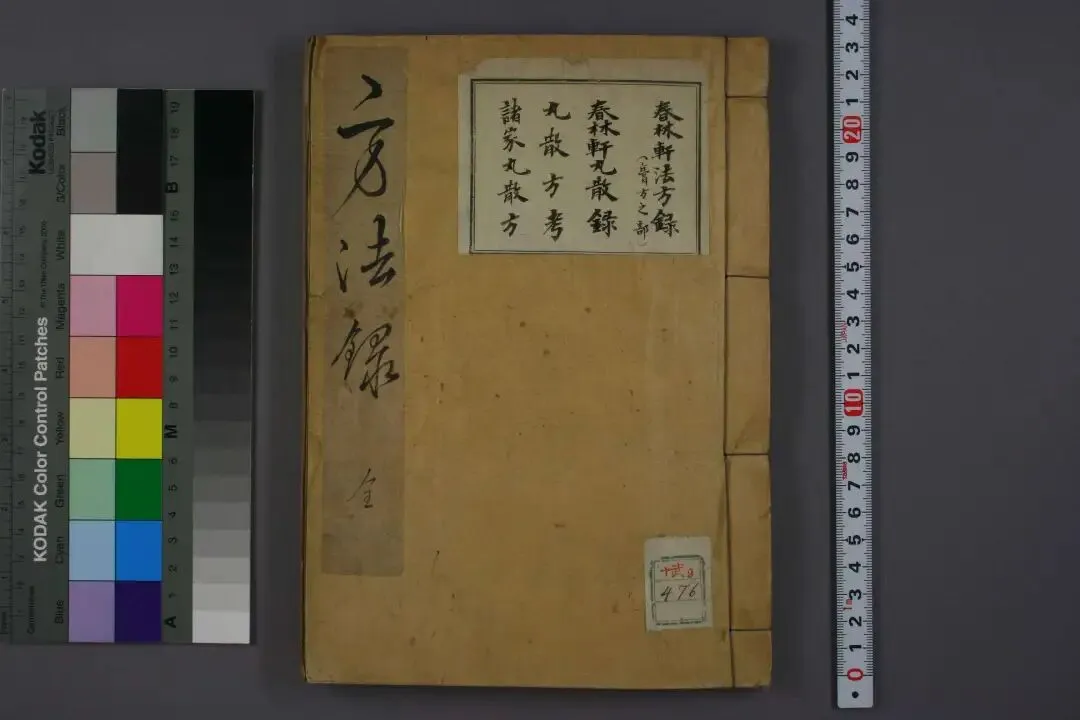 方法録
全
春林軒法方録
(膏方之部)
春林軒丸散録
丸散方考
諸家丸散方
476
Kodak
KODAK Color Control Patches
© The Tiffen Company, 2000
Centimetres
Blue
Cyan
Green
Yellow
Red
Magenta
White
3/Color
Black
A 1 2 3 4 5 6 M 8 9 10 11 12 13 14 15 B 17 18 19
0 1 2 3 4 5 6 7 8 9 10 1 2 3 4 5 6 7 8 9 20 1 2 3 4
JAPAN